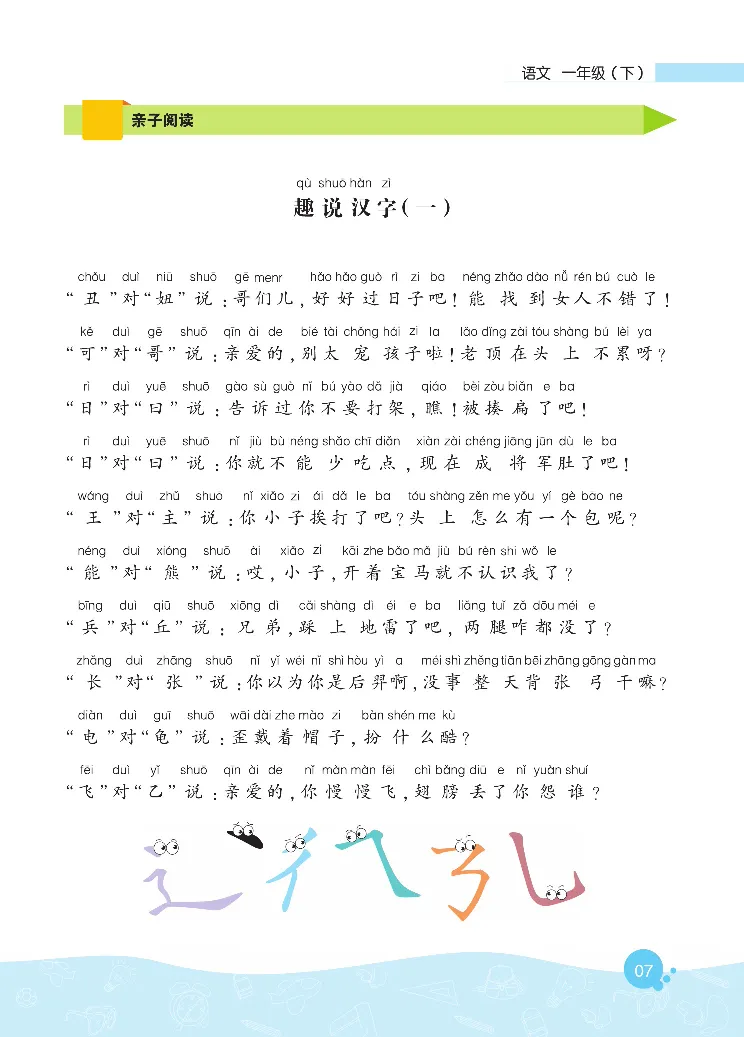 语文 一年级（下）
亲子阅读
qù shuō hàn zì
趣说汉字（一）
chǒu duì niū shuō gē menr hǎo hǎo guò rì zi ba néng zhǎo dào nǚ rén bú cuò le
“丑”对“妞”说：哥们儿，好好过日子吧！能找到女人不错了！
kě duì gē shuō qīn ài de bié tài chǒng hái zi la lǎo dǐng zài tóu shàng bú lèi ya
“可”对“哥”说：亲爱的，别太宠孩子啦！老顶在头上不累呀？
rì duì yuē shuō gào sù guò nǐ bú yào dǎ jià qiáo bèi zòu biǎn e ba
“日”对“曰”说：告诉过你不要打架，瞧！被揍扁了吧！
rì duì yuē shuō nǐ jiù bù néng shǎo chī diǎn xiàn zài chéng jiāng jūn dù le ba
“日”对“曰”说：你就不能少吃点，现在成将军肚了吧！
wáng duì zhǔ shuō nǐ xiǎo zi ái dǎ le ba tóu shàng zěn me yǒu yí gè bāo ne
“王”对“主”说：你小子挨打了吧？头上怎么有一个包呢？
néng duì xióng shuō āi xiǎo zi kāi zhe bǎo mǎ jiù bú rèn shi wǒ le
“能”对“熊”说：哎，小子，开着宝马就不认识我了？
bīng duì qiū shuō xiōng dì cǎi shàng dì éi e ba liǎng tuǐ zǎ dōu méi e
“兵”对“丘”说：兄弟，踩上地雷了吧，两腿咋都没了？
zhǎng duì zhāng shuō nǐ yǐ wéi nǐ shì hòu yì a méi shì zhěng tiān bēi zhāng gōng gàn ma
“长”对“张”说：你以为你是后羿啊，没事整天背张弓干嘛？
diàn duì guī shuō wāi dài zhe mào zi bàn shén me kù
“电”对“龟”说：歪戴着帽子，扮什么酷？
fēi duì yǐ shuō qīn ài de nǐ màn màn fēi chì bǎng diū e nǐ yuàn shuí
“飞”对“乙”说：亲爱的，你慢慢飞，翅膀丢了你怨谁？
07